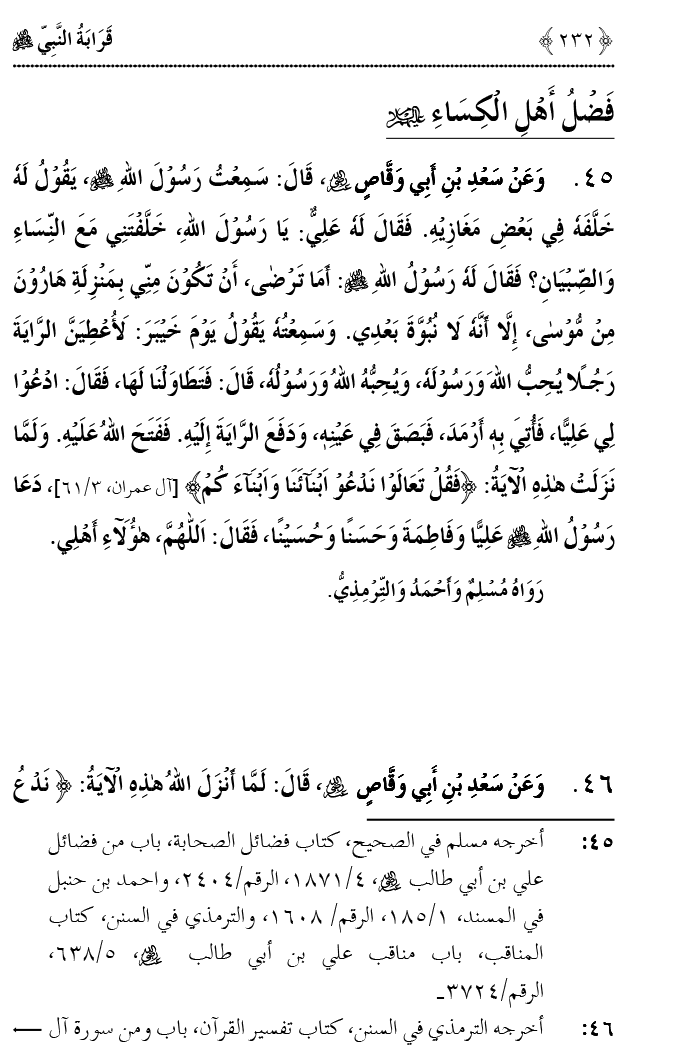 ﴿٢٣٢﴾ قَرَابَةُ النَّبِيِّ ﷺ
فَضْلُ أَهْلِ الْكِسَاءِ
٤٥. وَعَنْ سَعْدِ بْنِ أَبِي وَقَّاصٍ، قَالَ: سَمِعْتُ رَسُوْلَ اللهِ ﷺ، يَقُوْلُ لَهٗ
خَلَّفَهٗ فِي بَعْضِ مَغَازِيْهِ. فَقَالَ لَهٗ عَلِيٌّ: يَا رَسُوْلَ اللهِ، خَلَّفْتَنِي مَعَ النِّسَاءِ
وَالصِّبْيَانِ؟ فَقَالَ لَهٗ رَسُوْلُ اللهِ ﷺ: أَمَا تَرْضٰى، أَنْ تَكُوْنَ مِنِّي بِمَنْزِلَةِ هَارُوْنَ
مِنْ مُّوْسٰى، إِلَّا أَنَّهٗ لَا نُبُوَّةَ بَعْدِي. وَسَمِعْتُهٗ يَقُوْلُ يَوْمَ خَيْبَرَ: لَأُعْطِيَنَّ الرَّايَةَ
رَجُلًا يُحِبُّ اللهَ وَرَسُوْلَهٗ، وَيُحِبُّهُ اللهُ وَرَسُوْلُهٗ، قَالَ: فَتَطَاوَلْنَا لَهَا، فَقَالَ: ادْعُوْا
لِي عَلِيًّا، فَأُتِيَ بِهٖ أَرْمَدَ، فَبَصَقَ فِي عَيْنِهٖ، وَدَفَعَ الرَّايَةَ إِلَيْهِ. فَفَتَحَ اللهُ عَلَيْهِ. وَلَمَّا
نَزَلَتْ هٰذِهِ الْآيَةُ: ﴿فَقُلْ تَعَالَوْا نَدْعُ اَبْنَآئَنَا وَاَبْنَآءَ كُمْ﴾ [آل عمران، ٣/ ٦١]، دَعَا
رَسُوْلُ اللهِ ﷺ عَلِيًّا وَفَاطِمَةَ وَحَسَنًا وَحُسَيْنًا، فَقَالَ: اَللّٰهُمَّ، هٰؤُلَاءِ أَهْلِي.
رَوَاهُ مُسْلِمٌ وَأَحْمَدُ وَالتِّرْمِذِيُّ.
٤٦. وَعَنْ سَعْدِ بْنِ أَبِي وَقَّاصٍ، قَالَ: لَمَّا أَنْزَلَ اللهُ هٰذِهِ الْآيَةَ: ﴿نَدْعُ
٤٥: أخرجه مسلم في الصحيح، كتاب فضائل الصحابة، باب من فضائل
علي بن أبي طالب، ٤/ ١٨٧١، الرقم/ ٢٤٠٤، واحمد بن حنبل
في المسند، ١/ ١٨٥، الرقم/ ١٦٠٨، والترمذي في السنن، كتاب
المناقب، باب مناقب علي بن أبي طالب، ٥/ ٦٣٨،
الرقم/ ٣٧٢٤ـ
٤٦: أخرجه الترمذي في السنن، كتاب تفسير القرآن، باب ومن سورة آل